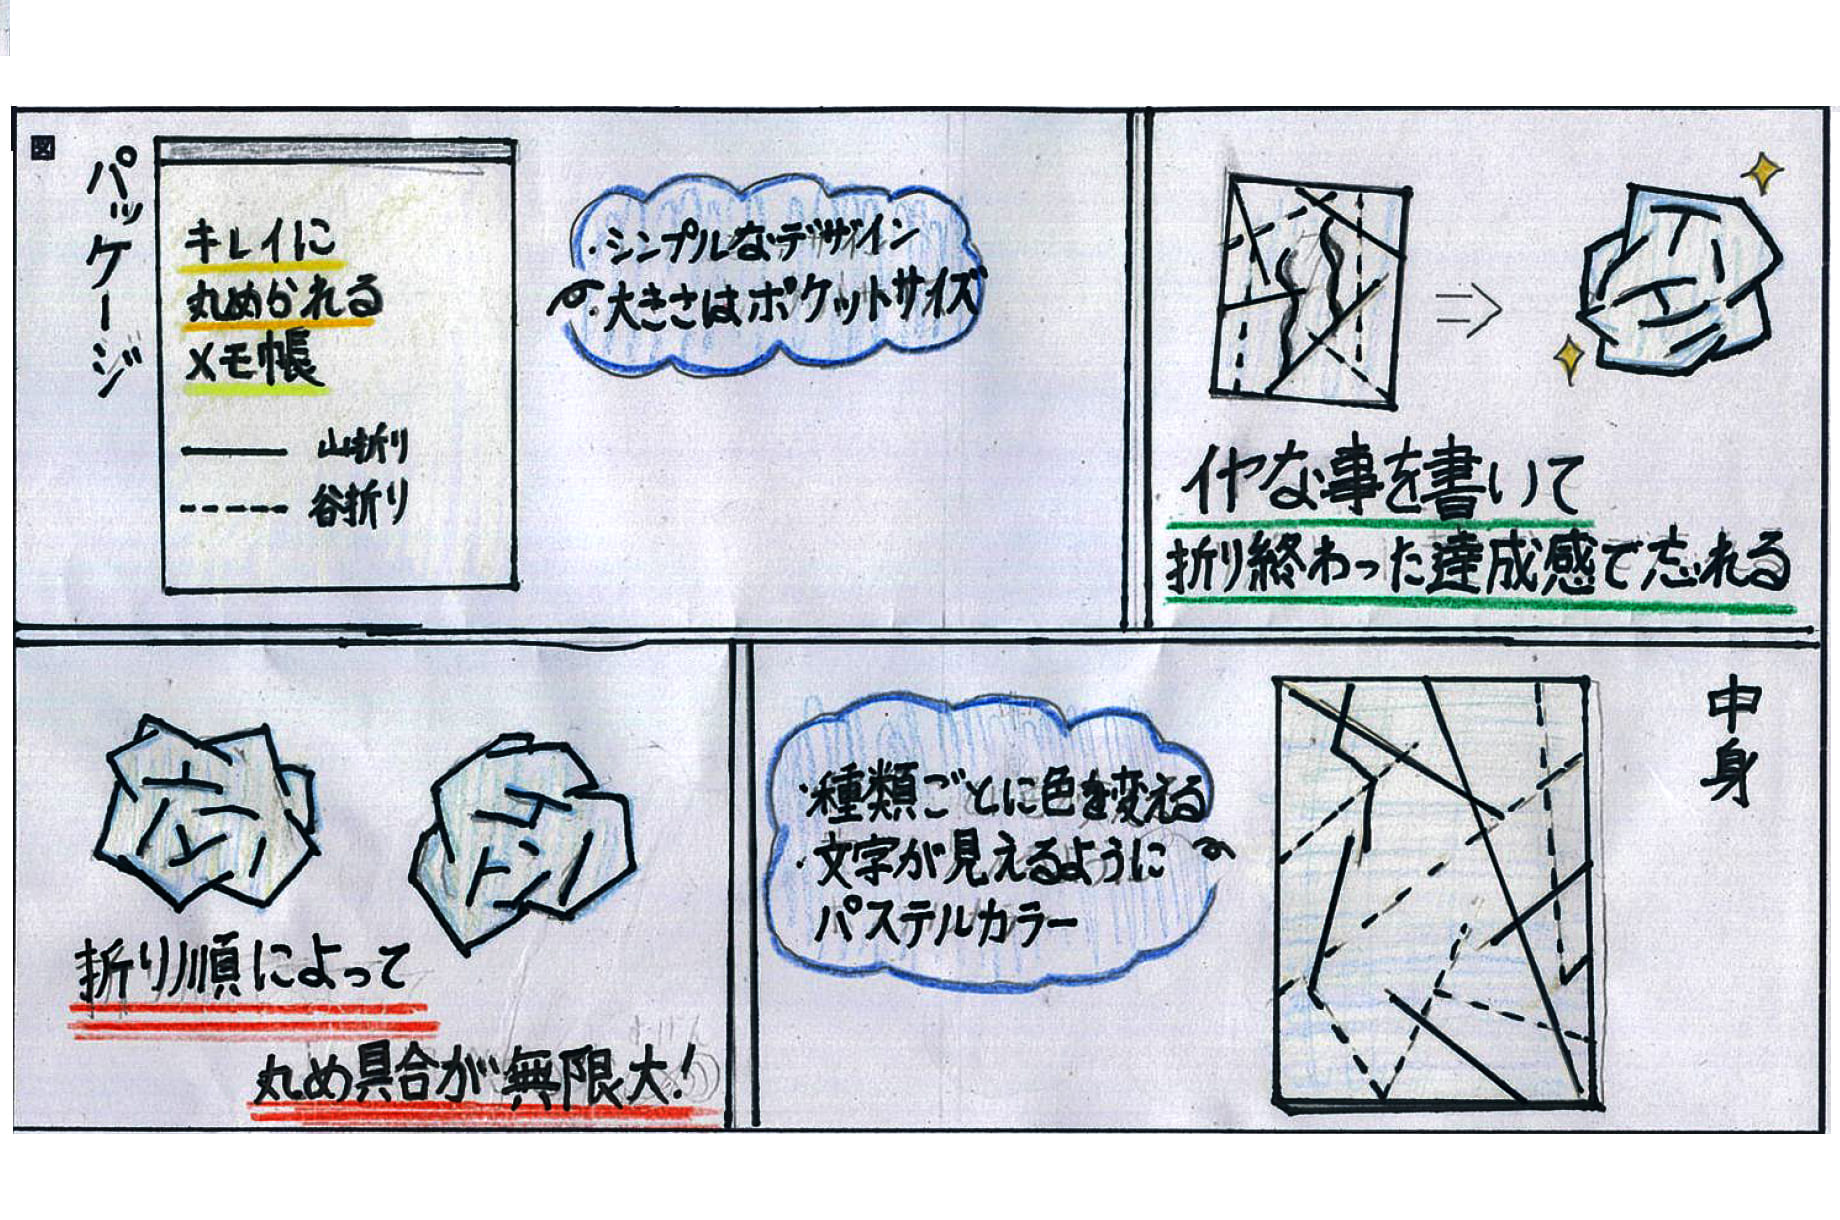 図
パッケージ
キレイに
丸められる
メモ帳
山折り
谷折り
・シンプルなデザイン
・大きさはポケットサイズ
イヤな事を書いて
折り終わった達成感で忘れる
折り順によって
丸め具合が無限大!
・種類ごとに色を変える
・文字が見えるように
パステルカラー
中身